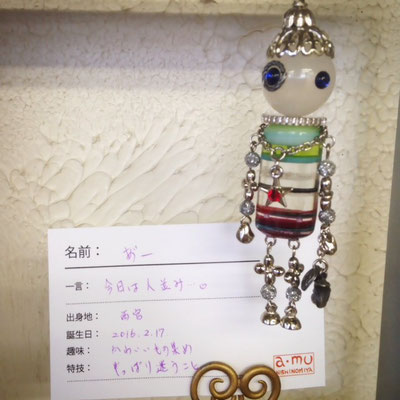 名前： あー
一言： 今日は人並み…。
出身地： 西宮
誕生日： 2016.2.17
趣味： かわいいもの集め
特技： やっぱり違うこと
a・mu
NISHINOMIYA